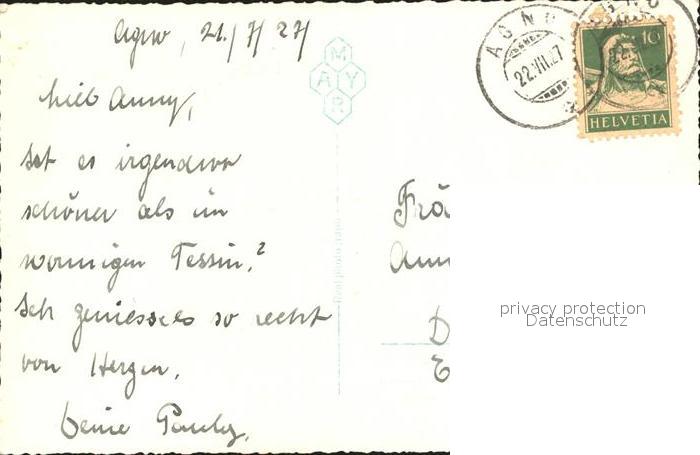 Agno, 21/7/27/
Lieb Anny,
Ist es irgendwo
schöner als im
wonnigen Tessin,?
Ich geniesse es so recht
von Herzen.
Deine Pauly.
MAYR
Real photo
AGNO
22.VII.27
10
HELVETIA
Frä
Ann
D
E
privacy protection
Datenschutz